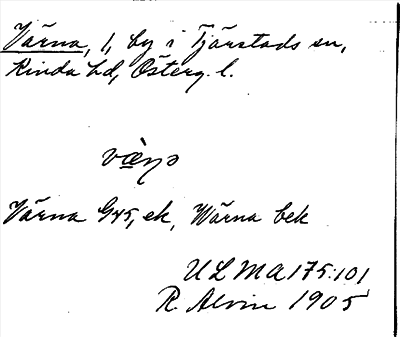 Värna, 1, by i Tjärstads sn,
Kinda hd, Österg. l.
Värna G45, ek, Wärna bek
ULMA 175:101
R. Alvin 1905